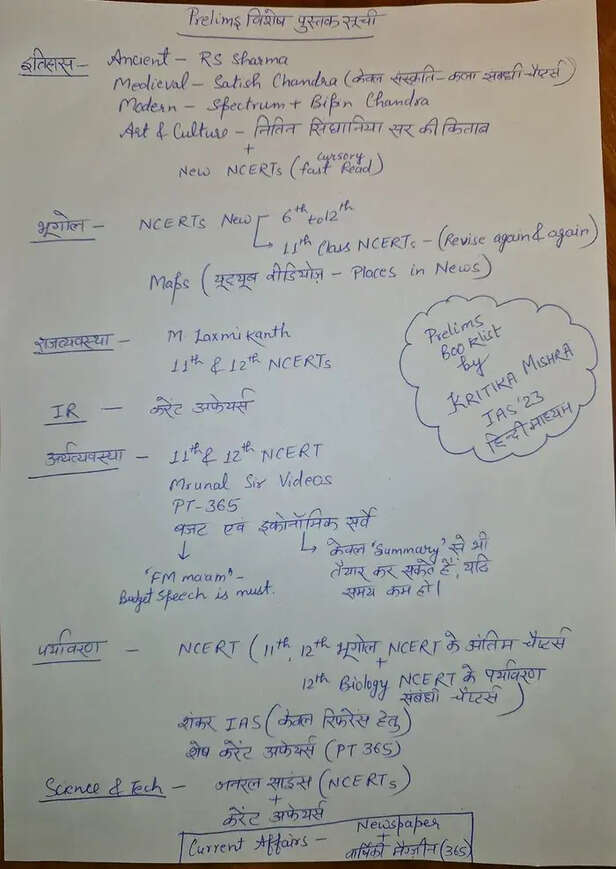 Prelims विशेष पुस्तक सूची
इतिहास - Ancient - RS Sharma
Medieval - Satish Chandra (केवल संस्कृति-कला संबंधी चैप्टर्स)
Modern - Spectrum + Bipin Chandra
Art & Culture - नितिन सिंघानिया सर की किताब
+
New NCERTs (cursory fast Read)
भूगोल - NCERTs New 6th to 12th
11th Class NCERTs - (Revise again & again)
Maps (यूट्यूब वीडियोज़ - Places in News)
राजव्यवस्था - M. Laxmikanth
11th & 12th NCERTs
Prelims
Booklist
by
KRITIKA MISHRA
IAS'23
हिन्दी माध्यम
IR - करेंट अफेयर्स
अर्थव्यवस्था - 11th & 12th NCERT
Mrunal Sir Videos
PT-365
बजट एवं इकोनॉमिक सर्वे
केवल 'Summary' से भी
तैयार कर सकते हैं, यदि
समय कम हो।
'FM maam' -
Budget Speech is must.
पर्यावरण - NCERT (11th, 12th भूगोल NCERT के अंतिम चैप्टर्स
+
12th Biology NCERT के पर्यावरण
संबंधी चैप्टर्स)
शंकर IAS (केवल रिफरेंस हेतु)
शेष करेंट अफेयर्स (PT 365)
Science & Tech - जनरल साइंस (NCERTs)
+
करेंट अफेयर्स
Current Affairs - Newspaper
+
वार्षिकी मैग्ज़ीन (365)